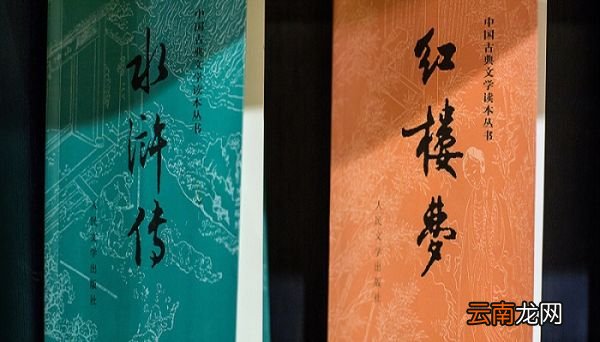 水浒传
中国古典文学读本丛书
人民文学出版社
红楼梦
中国古典文学读本丛书
人民文学出版社
云南龙网